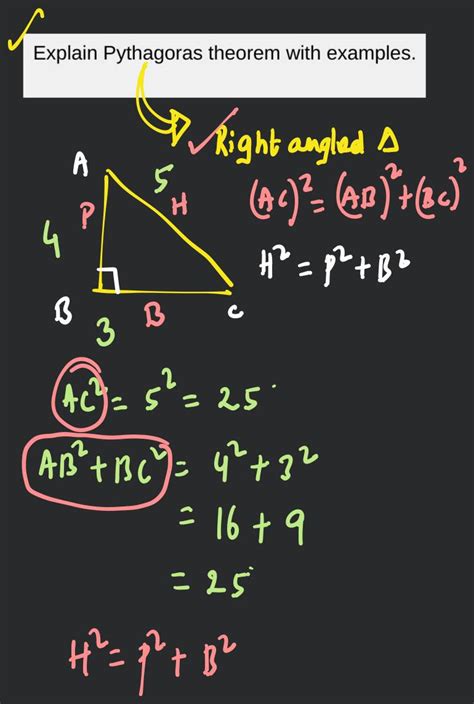 Explain Pythagoras theorem with examples.
Right angled Δ
A
5
P
H
(AC)² = (AB)² + (BC)²
4
H² = P² + B²
B
B
C
3
AC² = 5² = 25
AB² + BC² = 4² + 3²
= 16 + 9
= 25
H² = P² + B²